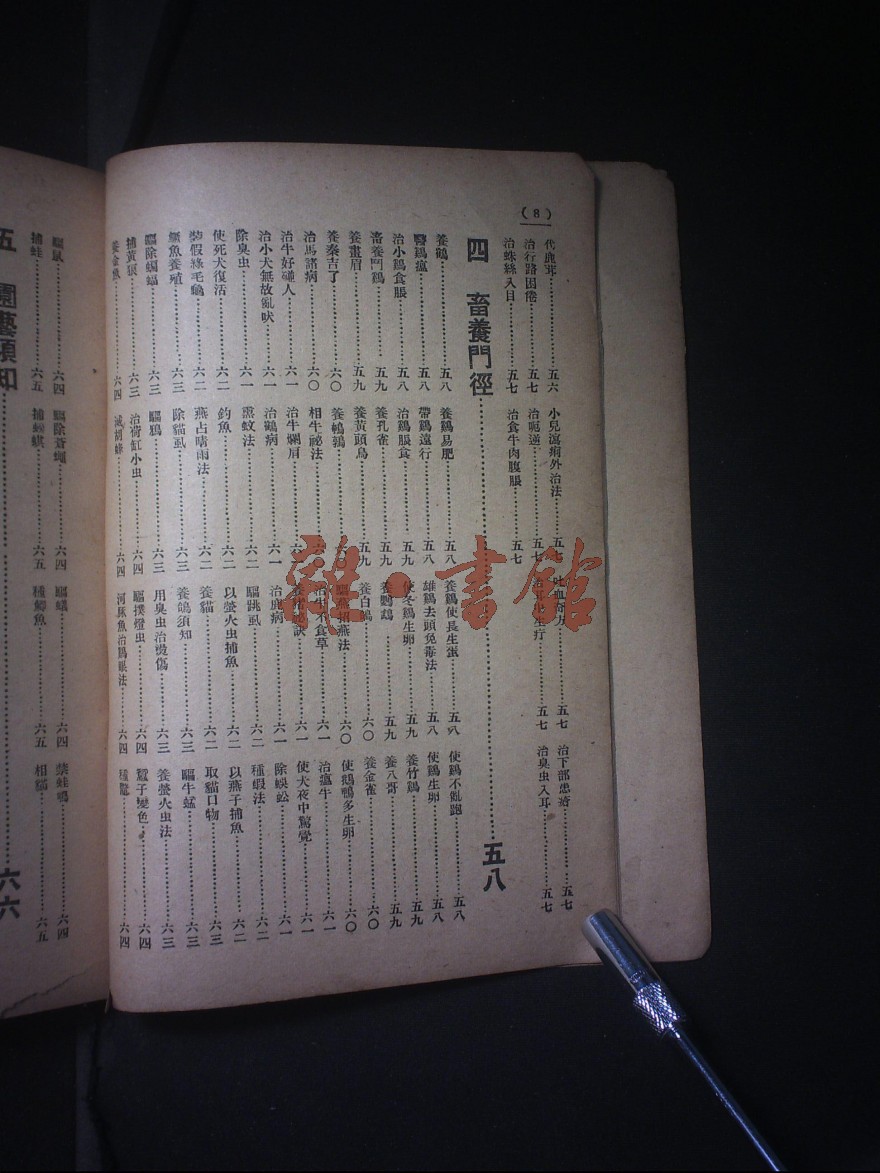 (8)
代鹿茸……五六 小兒瀉痢外治法……五七 吐血奇方……五七 治下部患瘡……五七
治行路困倦……五七 治呃逆……五七 治耳生疔……五七 治臭虫入耳……五七
治蛛絲入目……五七 治食牛肉腹脹……五七
四 畜養門徑……五八
養鷄……五八 養鷄易肥……五八 養鷄使長生蛋……五八 使鷄不亂跑……五八
醫鷄瘟……五八 帶鷄遠行……五八 雄鷄去頭免毒法……五八 使鷄生卵……五八
治小鷄食脹……五八 治鷄脹食……五九 使冬鷄生卵……五九 養竹鷄……五九
畜養鬥鷄……五九 養孔雀……五九 養鸚鵡……五九 養八哥……五九
養畫眉……五九 養黃頭鳥……五九 養白鶴……六〇 養金雀……六〇
養秦吉了……六〇 養鵪鶉……六〇 驅燕招燕法……六〇 使鵝鴨多生卵……六〇
治馬諸病……六〇 相牛祕法……六〇 治牛不食草……六一 治瘟牛……六一
治牛好碰人……六一 治牛爛肩……六一 養猪祕訣……六一 使犬夜中驚覺……六一
治小犬無故亂吠……六一 治鶴病……六一 治鹿病……六一 除蜈蚣……六一
除臭虫……六一 熏蚊法……六二 驅跳虱……六二 種蝦法……六二
使死犬復活……六二 釣魚……六二 以螢火虫捕魚……六二 以燕子捕魚……六二
裝假綠毛龜……六二 燕占晴雨法……六二 養貓……六二 取貓口物……六三
鱷魚養殖……六三 除貓虱……六三 養鴿須知……六三 驅牛蜢……六三
驅除蝙蝠……六三 驅鴉……六三 用臭虫治燙傷……六三 養螢火虫法……六三
捕黃狼……六三 治荷缸小虫……六四 驅撲燈虫……六四 蠶子變色……六四
養金魚……六四 滅胡蜂……六四 河豚魚治鷄眼法……六四 種鱉……六四
驅鼠……六四 驅除蒼蠅……六四 驅蟻……六四 禁蛙鳴……六四
捕蛙……六五 捕蟛蜞……六五 種鯽魚……六五 相貓……六五
五 園藝須知……六六
雜·書館